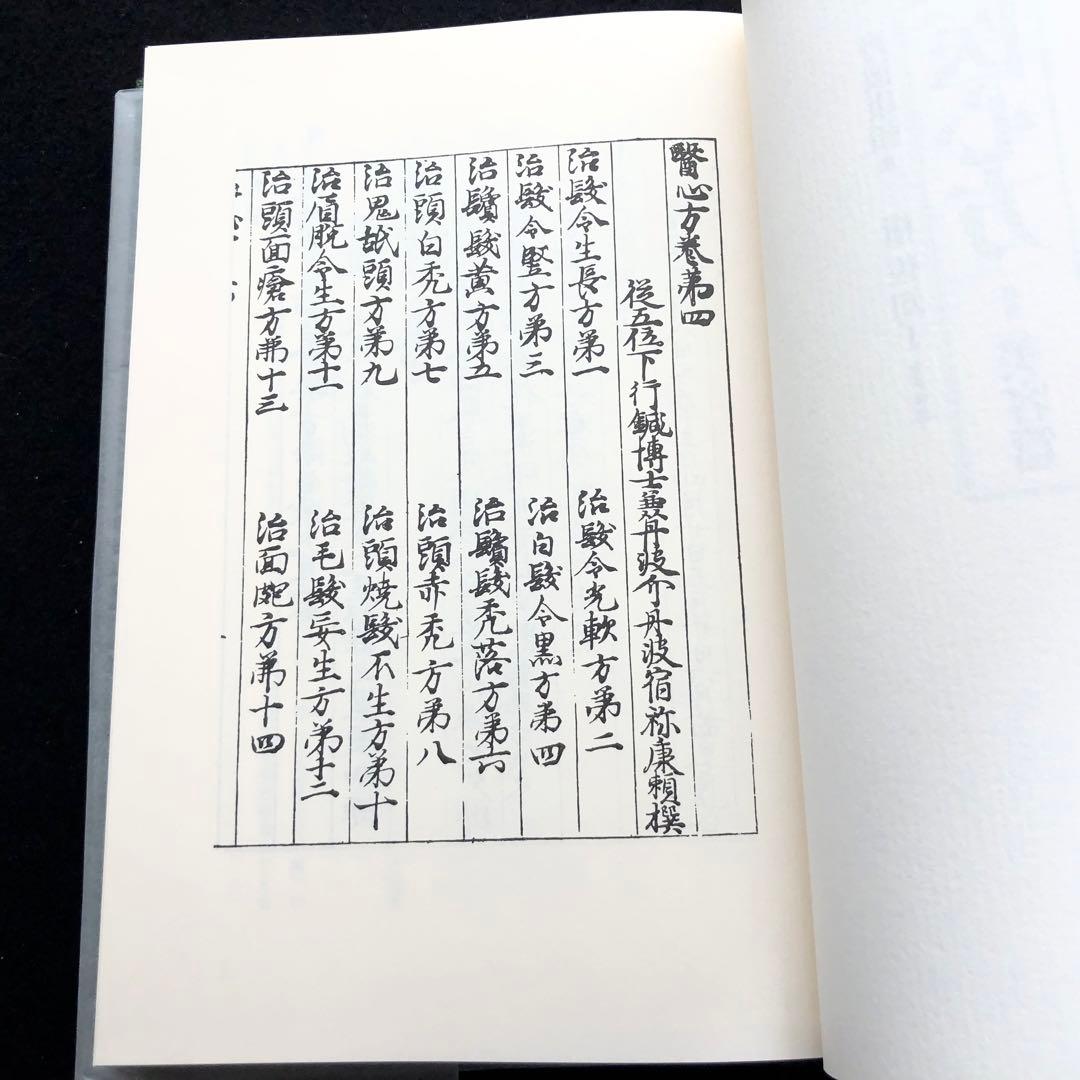 醫心方卷第四
從五位下行鍼博士兼丹波介丹波宿祢康賴撰
治髮令生長方第一 治髮令光軟方第二
治髮令堅方第三 治白髮令黑方第四
治鬢髮黃方第五 治鬢髮禿落方第六
治頭白禿方第七 治頭赤禿方第八
治鬼舐頭方第九 治頭燒髮不生方第十
治眉脫令生方第十一 治毛髮妄生方第十二
治頭面瘡方第十三 治面皰方第十四